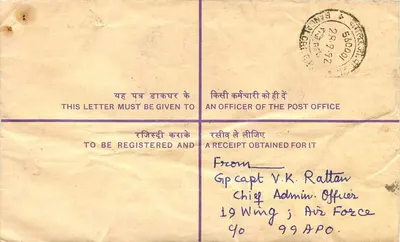 560001
28.9.92
यह पत्र डाकघर के किसी कर्मचारी को ही दें
THIS LETTER MUST BE GIVEN TO AN OFFICER OF THE POST OFFICE
रजिस्ट्री कराके रसीद ले लीजिए
TO BE REGISTERED AND A RECEIPT OBTAINED FOR IT
From
Gp Capt V.K. Rattan
Chief Admin. Officer
19 Wing ; Air Force
C/o 99 APO.